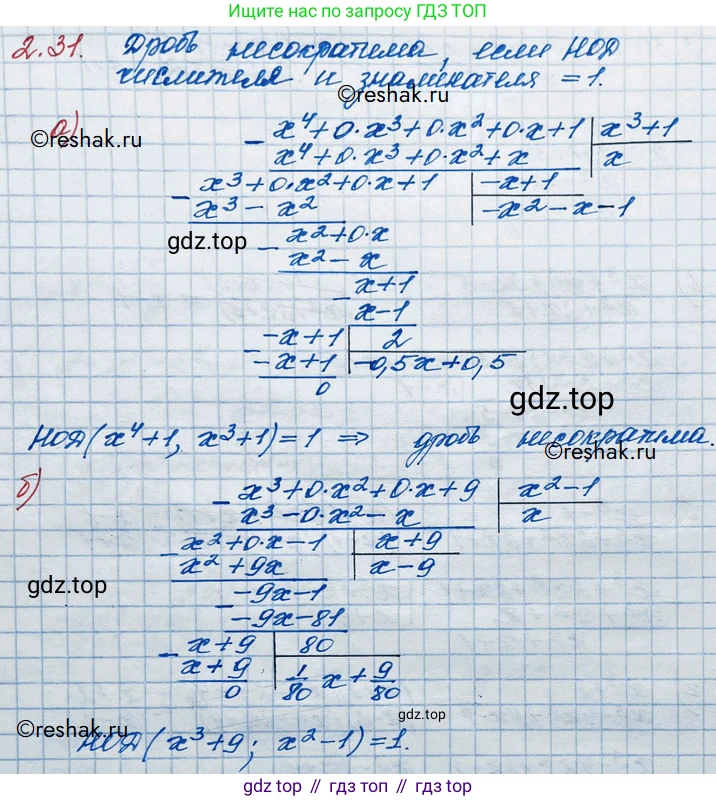 Ищите нас по запросу ГДЗ ТОП
2.31. Дробь несократима, если НОД
числителя и знаменателя = 1.
©reshak.ru
а)
©reshak.ru
- x⁴+0·x³+0·x²+0·x+1 | x³+1
x⁴+0·x³+0·x²+x | x
- x³+0·x²+0·x+1 | -x+1
x³-x² | -x²-x-1
gdz.top
- x²+0·x
x²-x
- x+1
x-1
- -x+1 | 2
-x+1 | -0,5x+0,5
0
gdz.top
НОД(x⁴+1, x³+1)=1 ⇒ дробь несократима.
©reshak.ru
б)
- x³+0·x²+0·x+9 | x²-1
x³-0·x²-x | x
- x²+0·x-1 | x+9
x²+9x | x-9
gdz.top
- -9x-1
-9x-81
- x+9 | 80
x+9 | 1/80 x + 9/80
0
gdz.top
©reshak.ru
НОД(x³+9; x²-1)=1.
gdz.top // гдз топ // gdz.top // гдз.топ